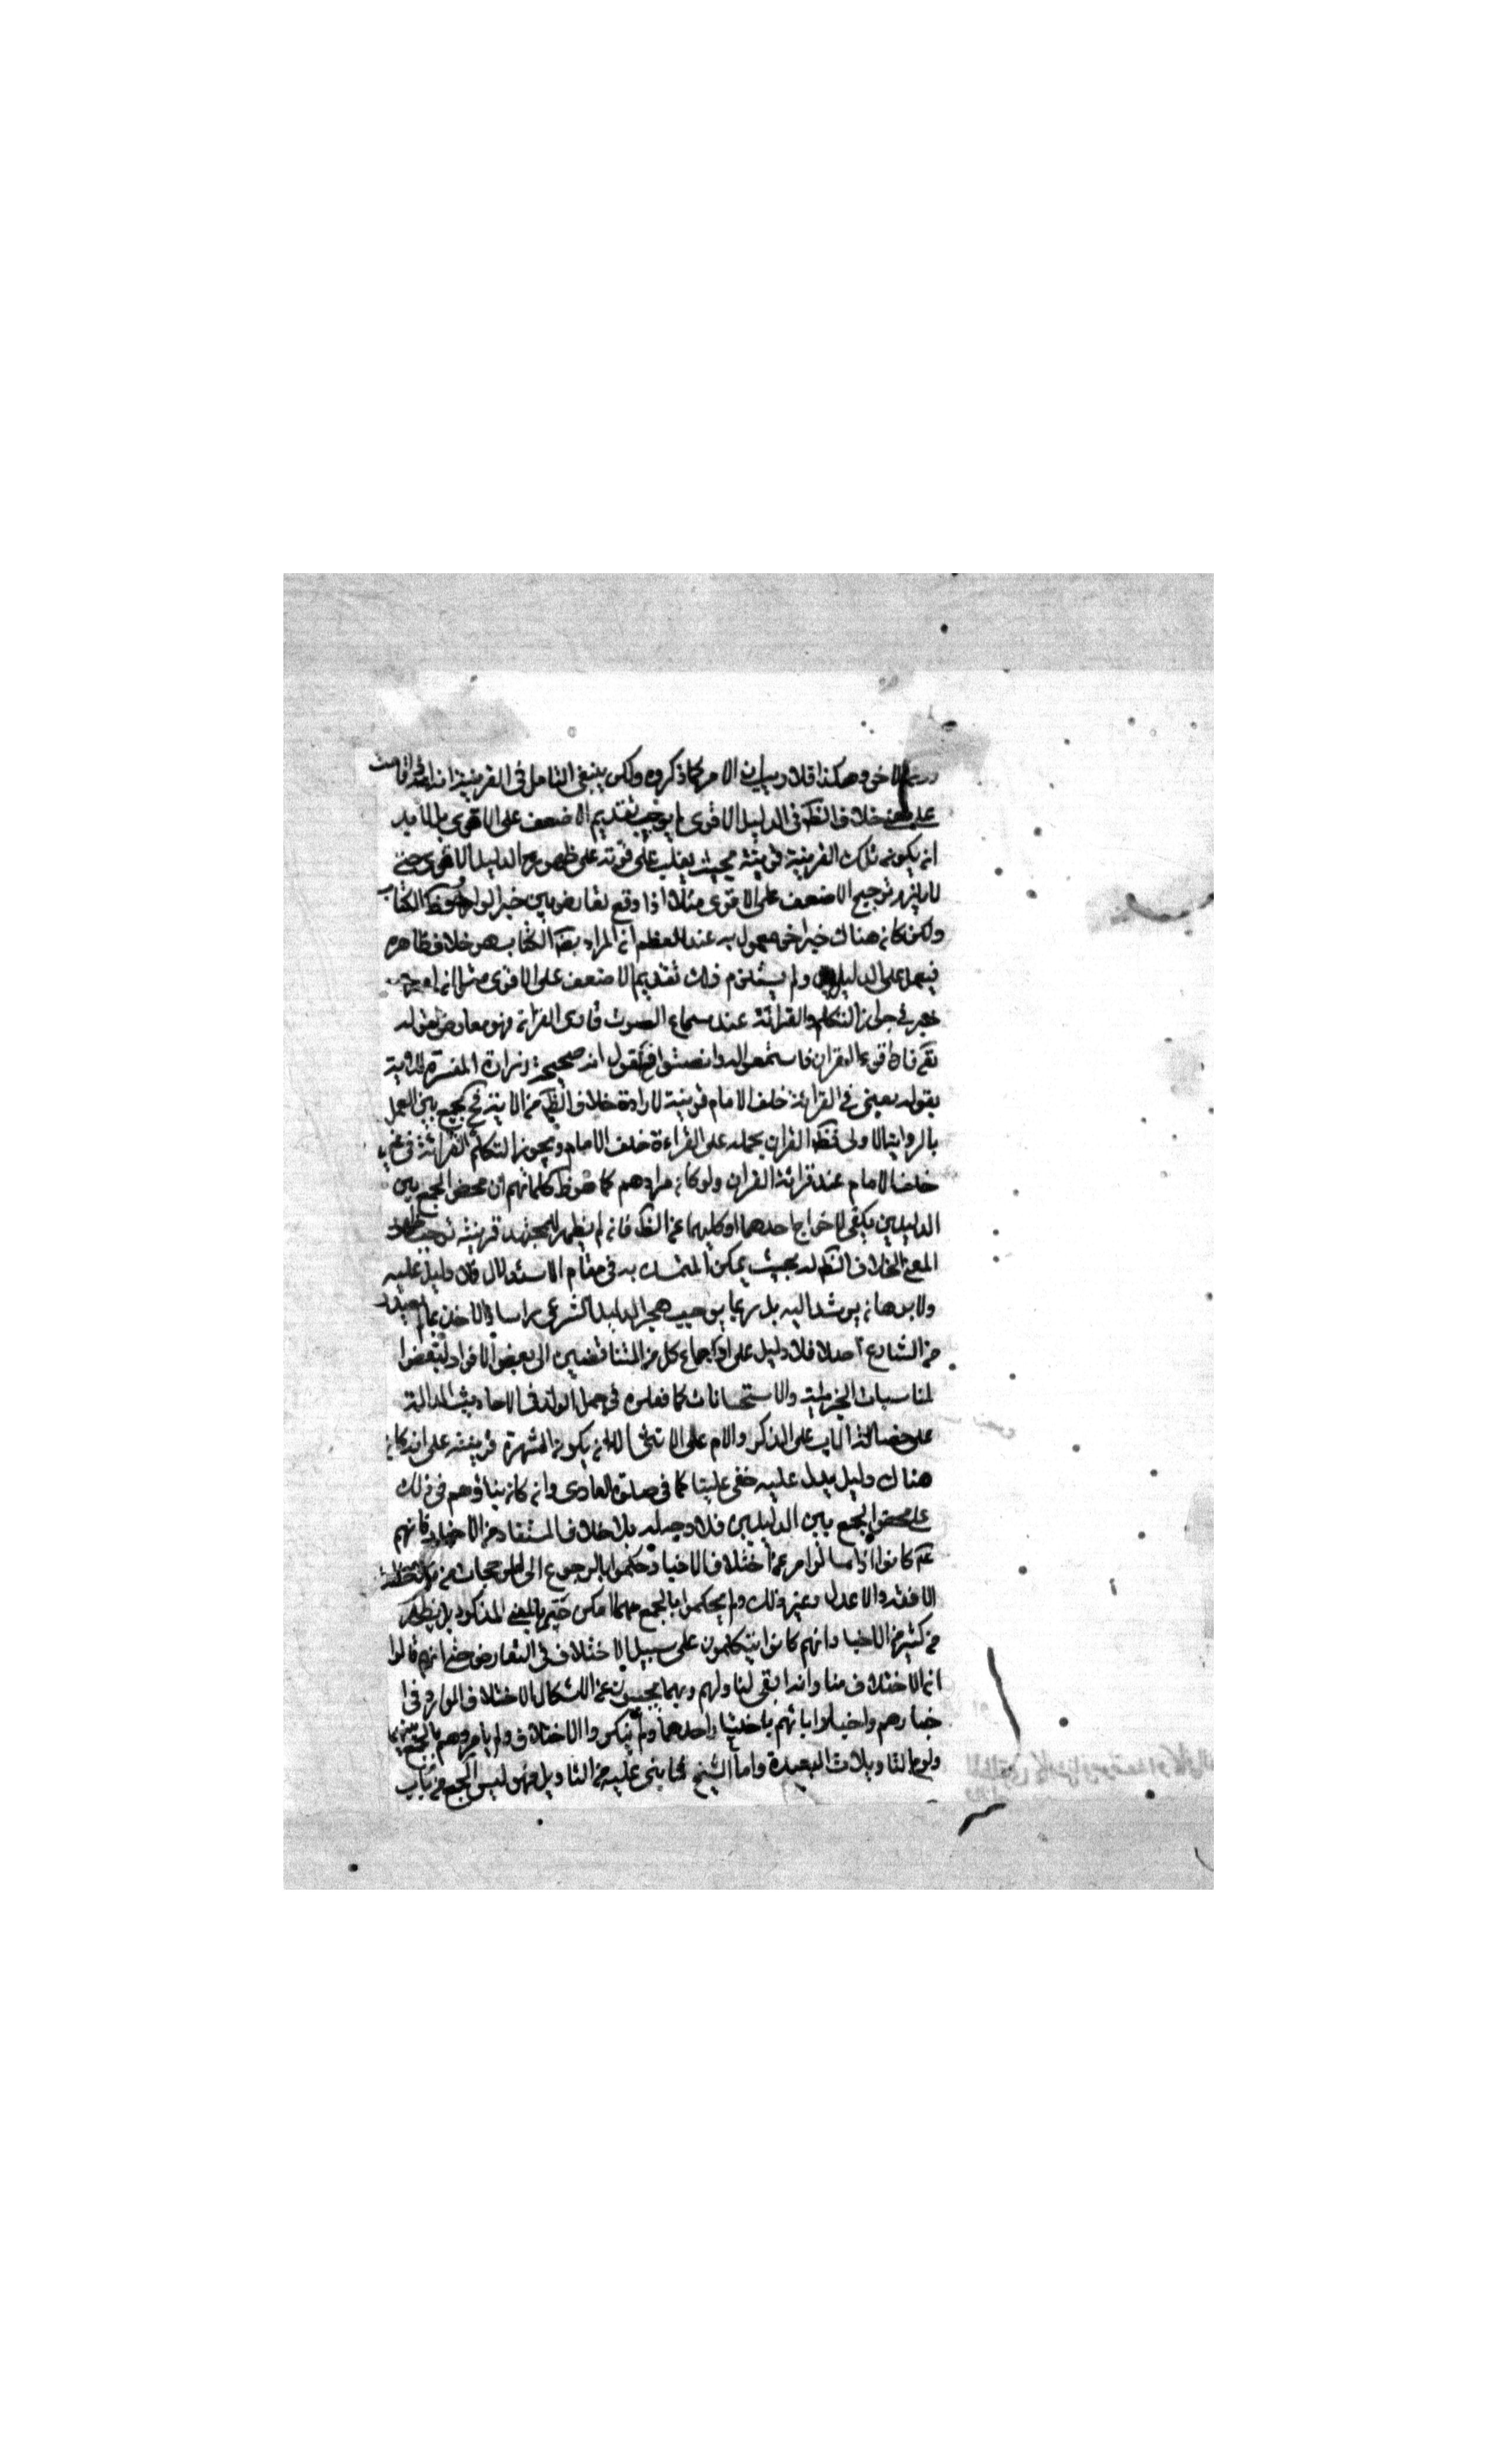 دون الاخر وهكذا فلا ريب ان الامر كما ذكروه ولكن ينبغى التامل فى القرينة انه اذا قامت
على خلاف الظ فى الدليل الاقوى لم يوجب تقديم الاضعف على الاقوى بل لابد
ان يكون تلك القرينة قرينة بحيث يغلب على قوته على ظهور الدليل الاقوى حتى
لا يلزم ترجيح الاضعف على الاقوى مثلا اذا وقع تعارض بين خبر الواحد وظ الكتاب
ولكن كان هناك خبر اخر معمول به عند المعظم ان المراد بهذا الكتاب هو خلاف ظاهره
فيعمل على الدليلين ولم يستلزم ذلك تقديم الاضعف على الاقوى مثل انه
خبر فى جواز التكلم والقرائة عند سماع الصوت قارى القران فهو معارض لقوله
تعم فاذا قرء القران فاستمعوا له وانصتوا فنقول ان صحيحة زرارة المفسرة للاية
بقوله يعنى فى القرائة خلف الامام قرينة لارادة خلاف الظ من الاية فح يجمع بين العمل
بالرواية الاولى وظ القران بحمله على القراءة خلف الامام ويجوز التكلم والقرائة فى غير
خلف الامام عند قرائة القران ولو كان مرادهم كما هو ظ كلماتهم ان محض الجمع بين
الدليلين يكفى لاخراج احدهما او كليهما عن الظ فان لم يظهر للمجتهد قرينة توجب ظهور
المعنى المخالف للظ له بحيث يمكن التمسك به فى مقام الاستدلال فلا دليل عليه
ولا برهان يرشد اليه بل ربما يوجب هجر الدليل الشرعى راسا والاخذ بما لم
من الشارع اصلا فلا دليل على ارجاع كل من المتناقضين الى بعض الافراد لبعض
المناسبات الجزئية والاستحسانات كما فعلوه فى حمل الولد فى الاحاديث الدالة
على حضانة الاب على الذكر والام على الانثى الا ان يكون الشهرة قرينة على انه كان
هناك دليل يدل عليه خفى علينا كما فى صلوة العارى وان كان بناؤهم فى ذلك
على محض الجمع بين الدليلين فلا وجه له بل خلاف المستفاد من الاخبار فانهم
عم كانوا اذا سالوا مرعن اختلاف الاخبار حكموا بالرجوع الى المرجحات من
الافقه والاعدل وغير ذلك ولم يحكموا بالجمع مهما امكن حتى بالمعنى المذكور بل يظهر
من كثير من الاخبار انهم كانوا يتكلمون على سبيل الاختلاف فى التعارض حتى انهم قالوا
ان الاختلاف منا وانه ابقى لنا ولهم وربما يجيبون عن اشكال الاختلاف الوارد فى ا
خبارهم واخبار ابائهم باختيار احدهما ولم ينكروا الاختلاف ولم يامروهم بالجمع بينهما
ولو بالتاويلات البعيدة واما الشيخ فما بنى عليه من التاويل فهو ليس الجمع من باب